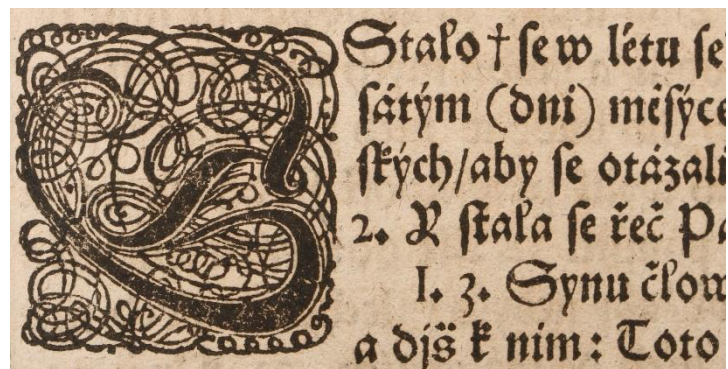 Stalo † se w létu se
sátým (dni) měsýc
ských/aby se otázali
2. Y stala se řeč Pa
I. 3. Synu člow
a djš k nim: Toto